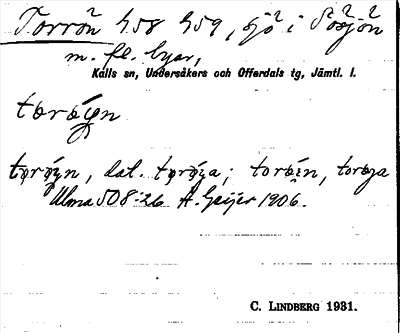 Torrön 458 459, sjö i Sösjön
m. fl. byar,
Kalls sn, Undersåkers och Offerdals tg, Jämtl. l.
torǿyn
torǿyn, dat. torǿya; torøin, torøya
Ulma 508:26 A. Geijer 1906.
C. LINDBERG 1931.